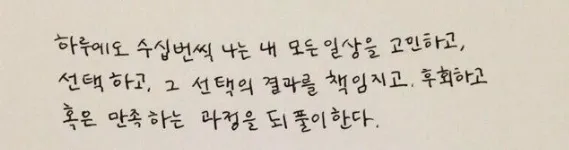 하루에도 수십번씩 나는 내 모든일상을 고민하고,
선택하고, 그 선택의 결과를 책임지고. 후회하고
혹은 만족하는 과정을 되풀이한다.